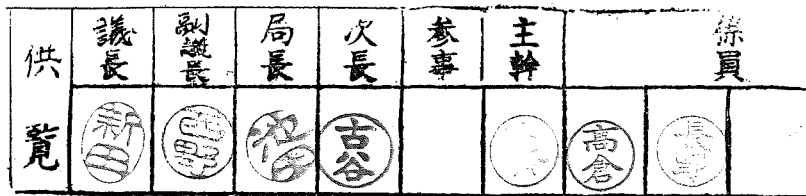 供覧 議長 副議長 局長 次長 参事 主幹 係員
新田 古谷 高倉